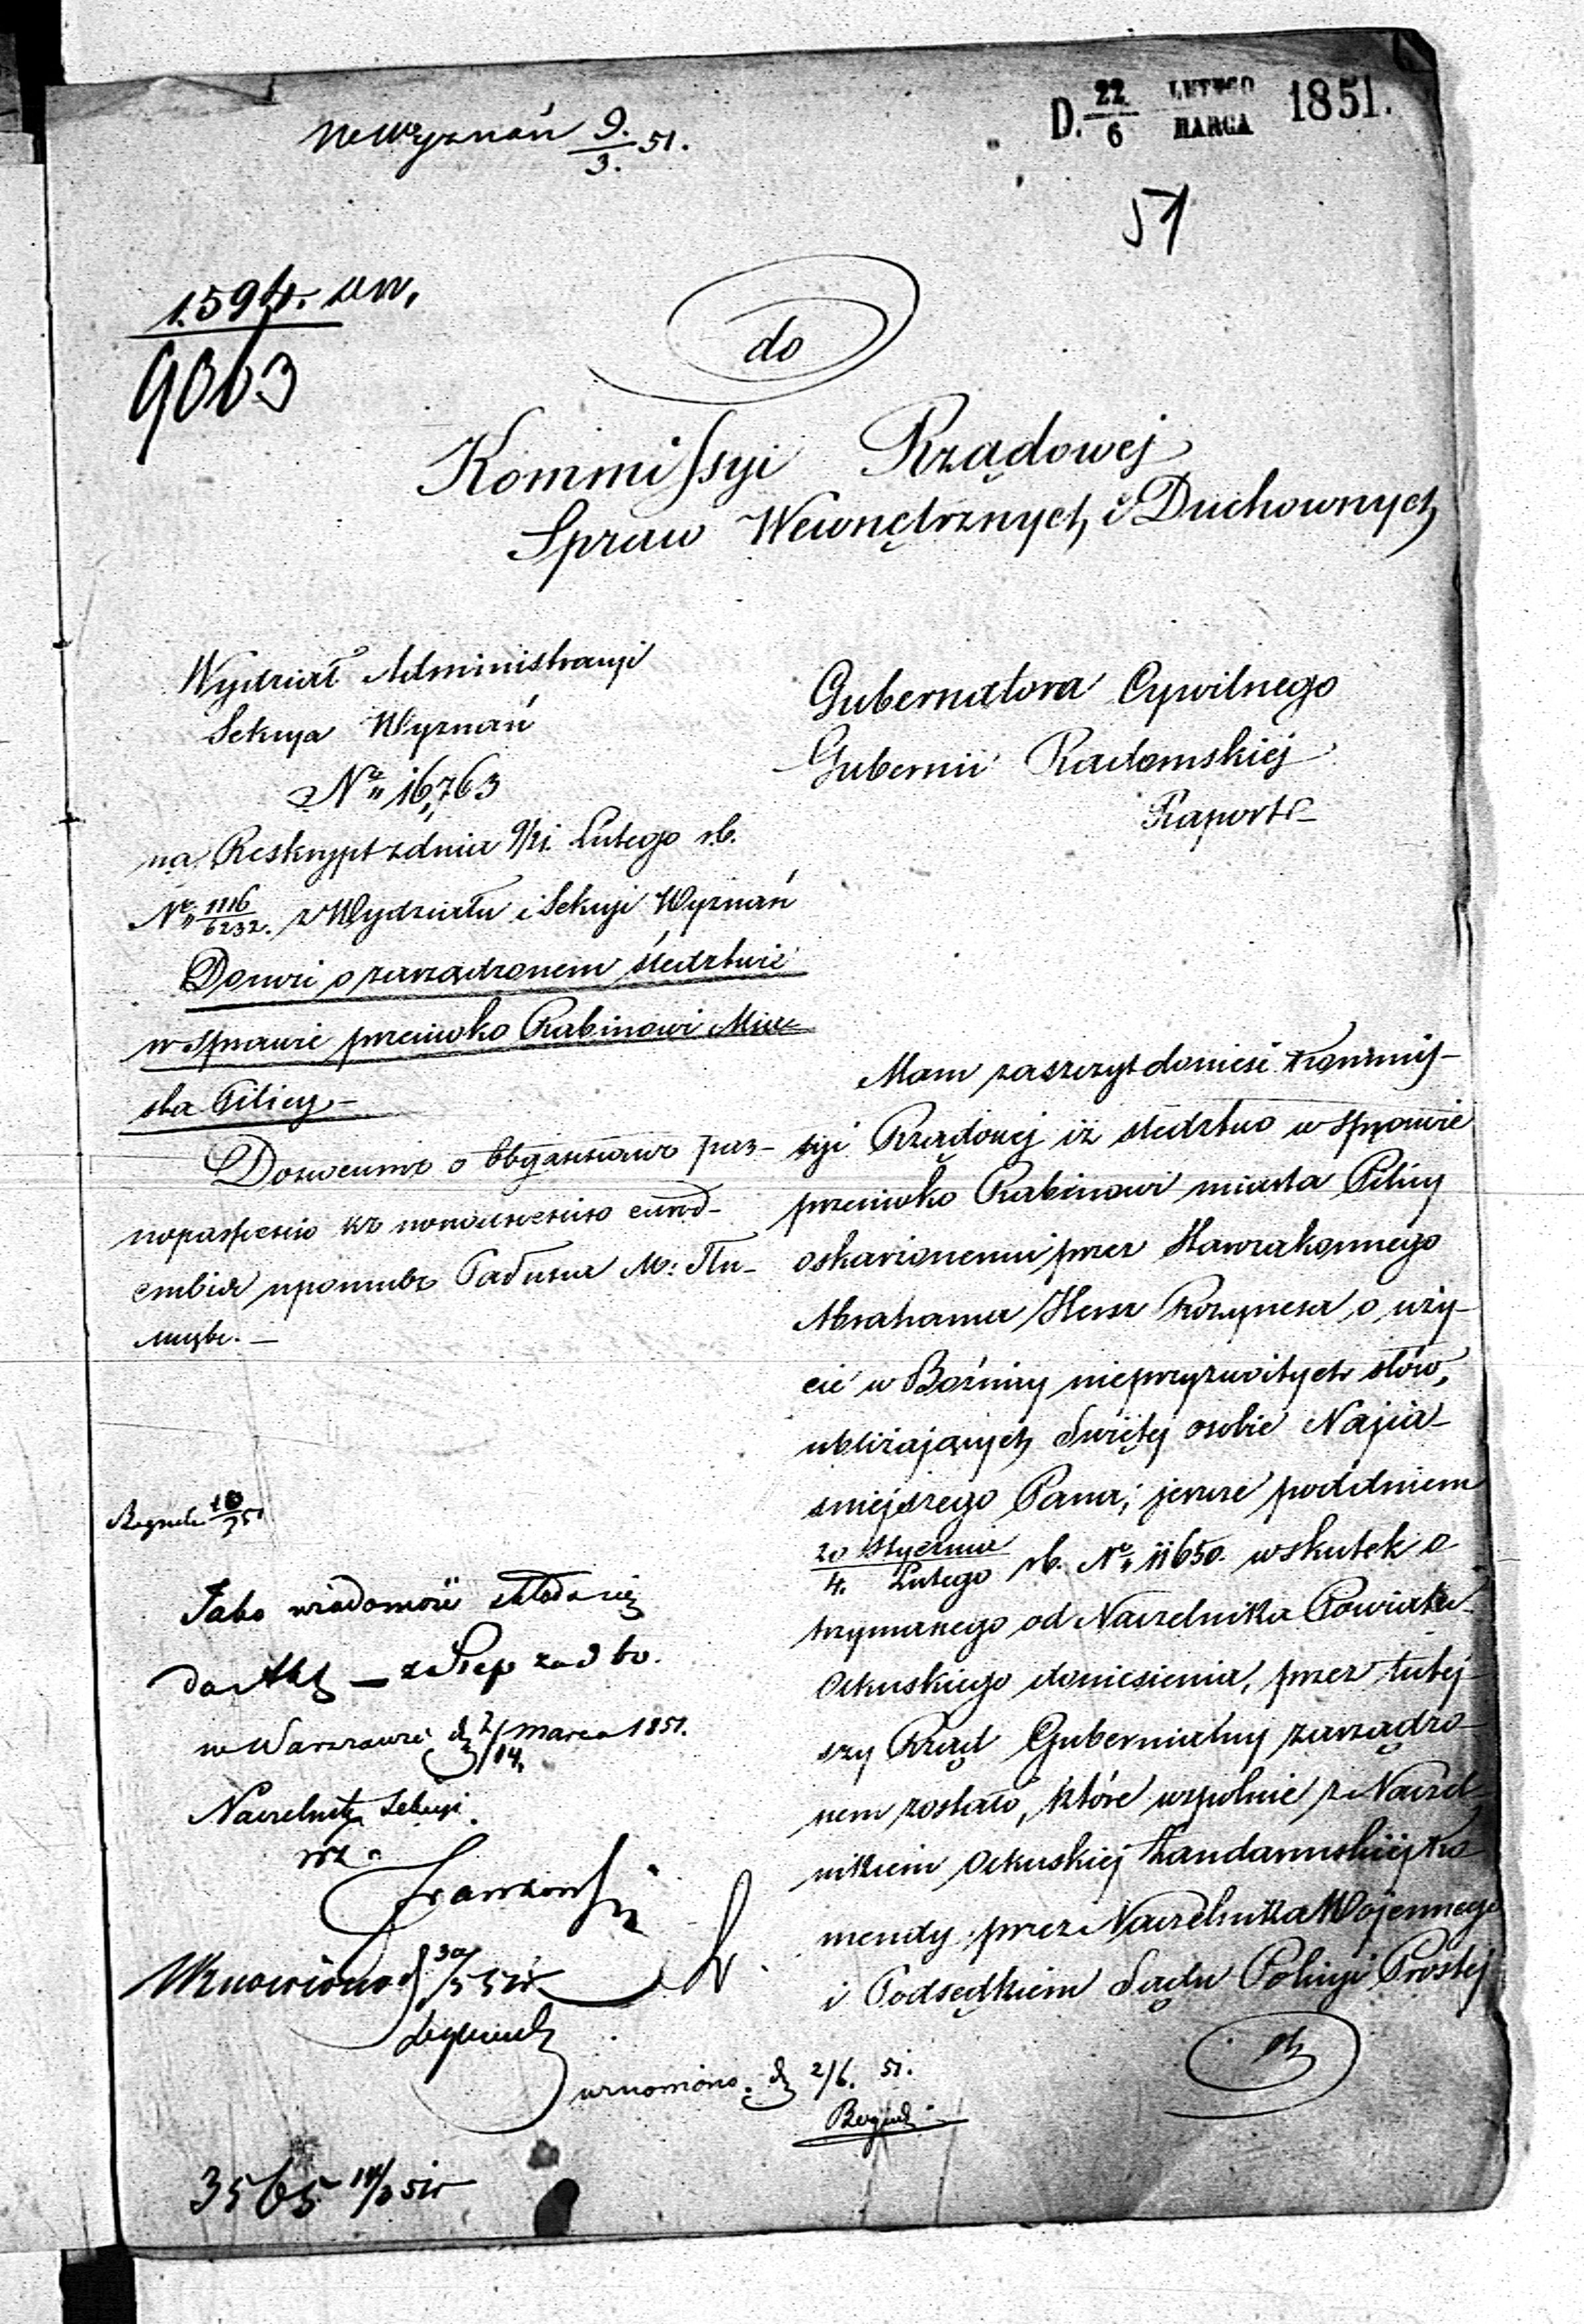 w Wyznań 9/3. 51.
D. 22/6 LUTEGO/MARCA 1851.
51
1594. wn.
9063
do
Kommissyi Rządowej
Spraw Wewnętrznych i Duchownych
Wydział Administracyi
Sekcya Wyznań
N° 16,763
na Reskrypt z dnia 9/21 Lutego r.b.
N° 1116/6232. z Wydziału i Sekcyi Wyznań
Donosi o zarządzonem śledztwie
w sprawie przeciwko Rabinowi Mia-
sta Pilicy.-
Донесение о
раввина М: Пи-
лицы. -
Gubernatora Cywilnego
Gubernii Radomskiej
Raport
Mam zaszczyt donieść Kommis-
syi Rządowej iż śledztwo w sprawie
przeciwko Rabinowi miasta Pilicy
oskarżonemu przez Starozakonnego
Abrahama Hersz o uży-
cie w Bożnicy nieprzyzwoitych słów,
ubliżających Świętej osobie Najja-
śniejszego Pana; jeszcze pod dniem
20 Stycznia/4. Lutego r.b. N° 11650. wskutek o-
trzymanego od Naczelnika Powiatu
Olkuskiego doniesienia, przez tutej-
szy Rząd Gubernialny zarządzo-
nem zostało, które wspólnie z Naczel-
nikiem Olkuskiej Żandarmskiej Ko-
mendy, przez Naczelnika Wojennego
i Podsędkiem Sądu Policyi Prostej
Jako wiadomość składa się
do Akt
w Warszawie d. 2/14 marca 1851.
Naczelnik Sekcyi
Wznowiono d. 30/5 51
wznowiono d. 2/6. 51.
3565 14/3 51